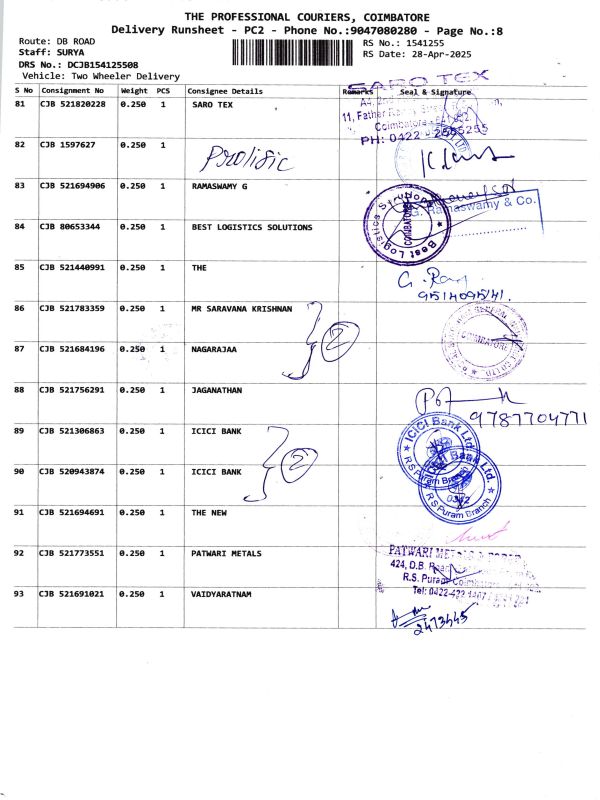 THE PROFESSIONAL COURIERS, COIMBATORE
Delivery Runsheet - PC2 - Phone No.:9047080280 - Page No.:8
Route: DB ROAD
RS No.: 1541255
Staff: SURYA
RS Date: 28-Apr-2025
DRS No.: DCJB154125508
Vehicle: Two Wheeler Delivery
S No Consignment No Weight PCS Consignee Details Remarks Seal & Signature
SARO TEX
81 CJB 521820228 0.250 1 SARO TEX
11, Father
Coimbatore
PH: 0422 - 2555255
82 CJB 1597627 0.250 1 Prolific
83 CJB 521694906 0.250 1 RAMASWAMY G
G. Ramaswamy & Co.
84 CJB 80653344 0.250 1 BEST LOGISTICS SOLUTIONS
Best Logistics Solution
COIMBATORE
85 CJB 521440991 0.250 1 THE
86 CJB 521783359 0.250 1 MR SARAVANA KRISHNAN
2
COIMBATORE
87 CJB 521684196 0.250 1 NAGARAJAA
88 CJB 521756291 0.250 1 JAGANATHAN
9787704771
89 CJB 521306863 0.250 1 ICICI BANK
2
ICICI Bank Ltd.
R S Puram Branch
90 CJB 520943874 0.250 1 ICICI BANK
ICICI Bank Ltd.
0342
R S Puram Branch
91 CJB 521694691 0.250 1 THE NEW
92 CJB 521773551 0.250 1 PATWARI METALS
PATWARI
424, D.B. Road
R.S. Puram
Tel: 0422-422
93 CJB 521691021 0.250 1 VAIDYARATNAM
2473645